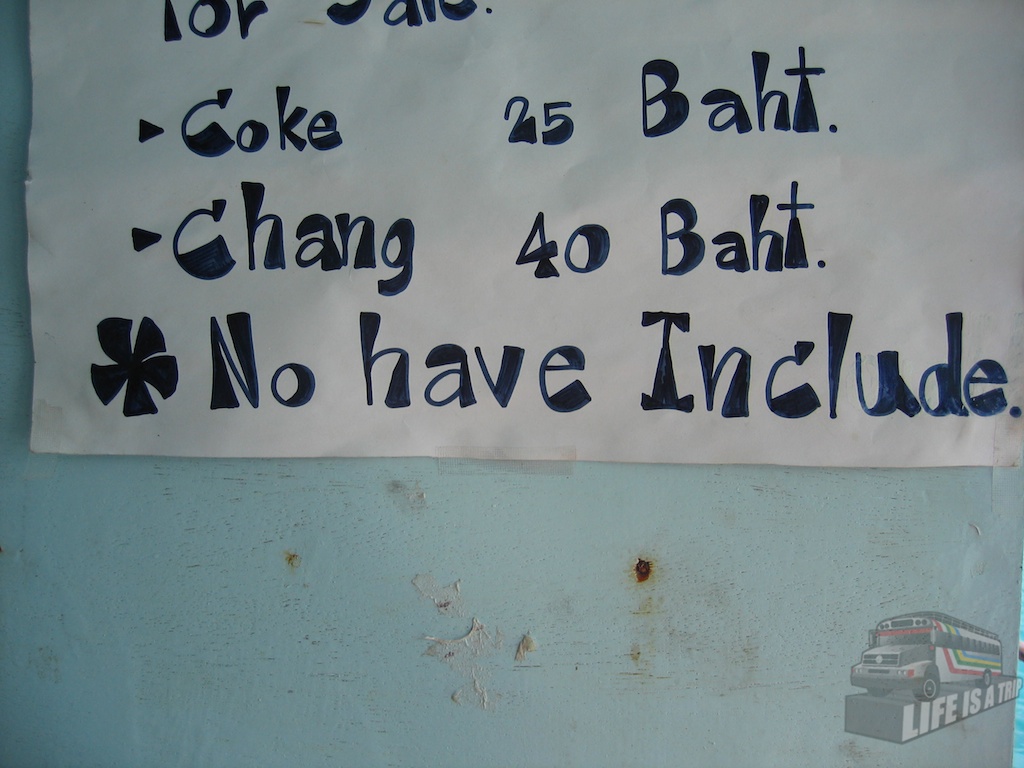 for Sale.
▸ Coke 25 Baht.
▸ Chang 40 Baht.
✽ No have Include.
LIFE IS A TRIP